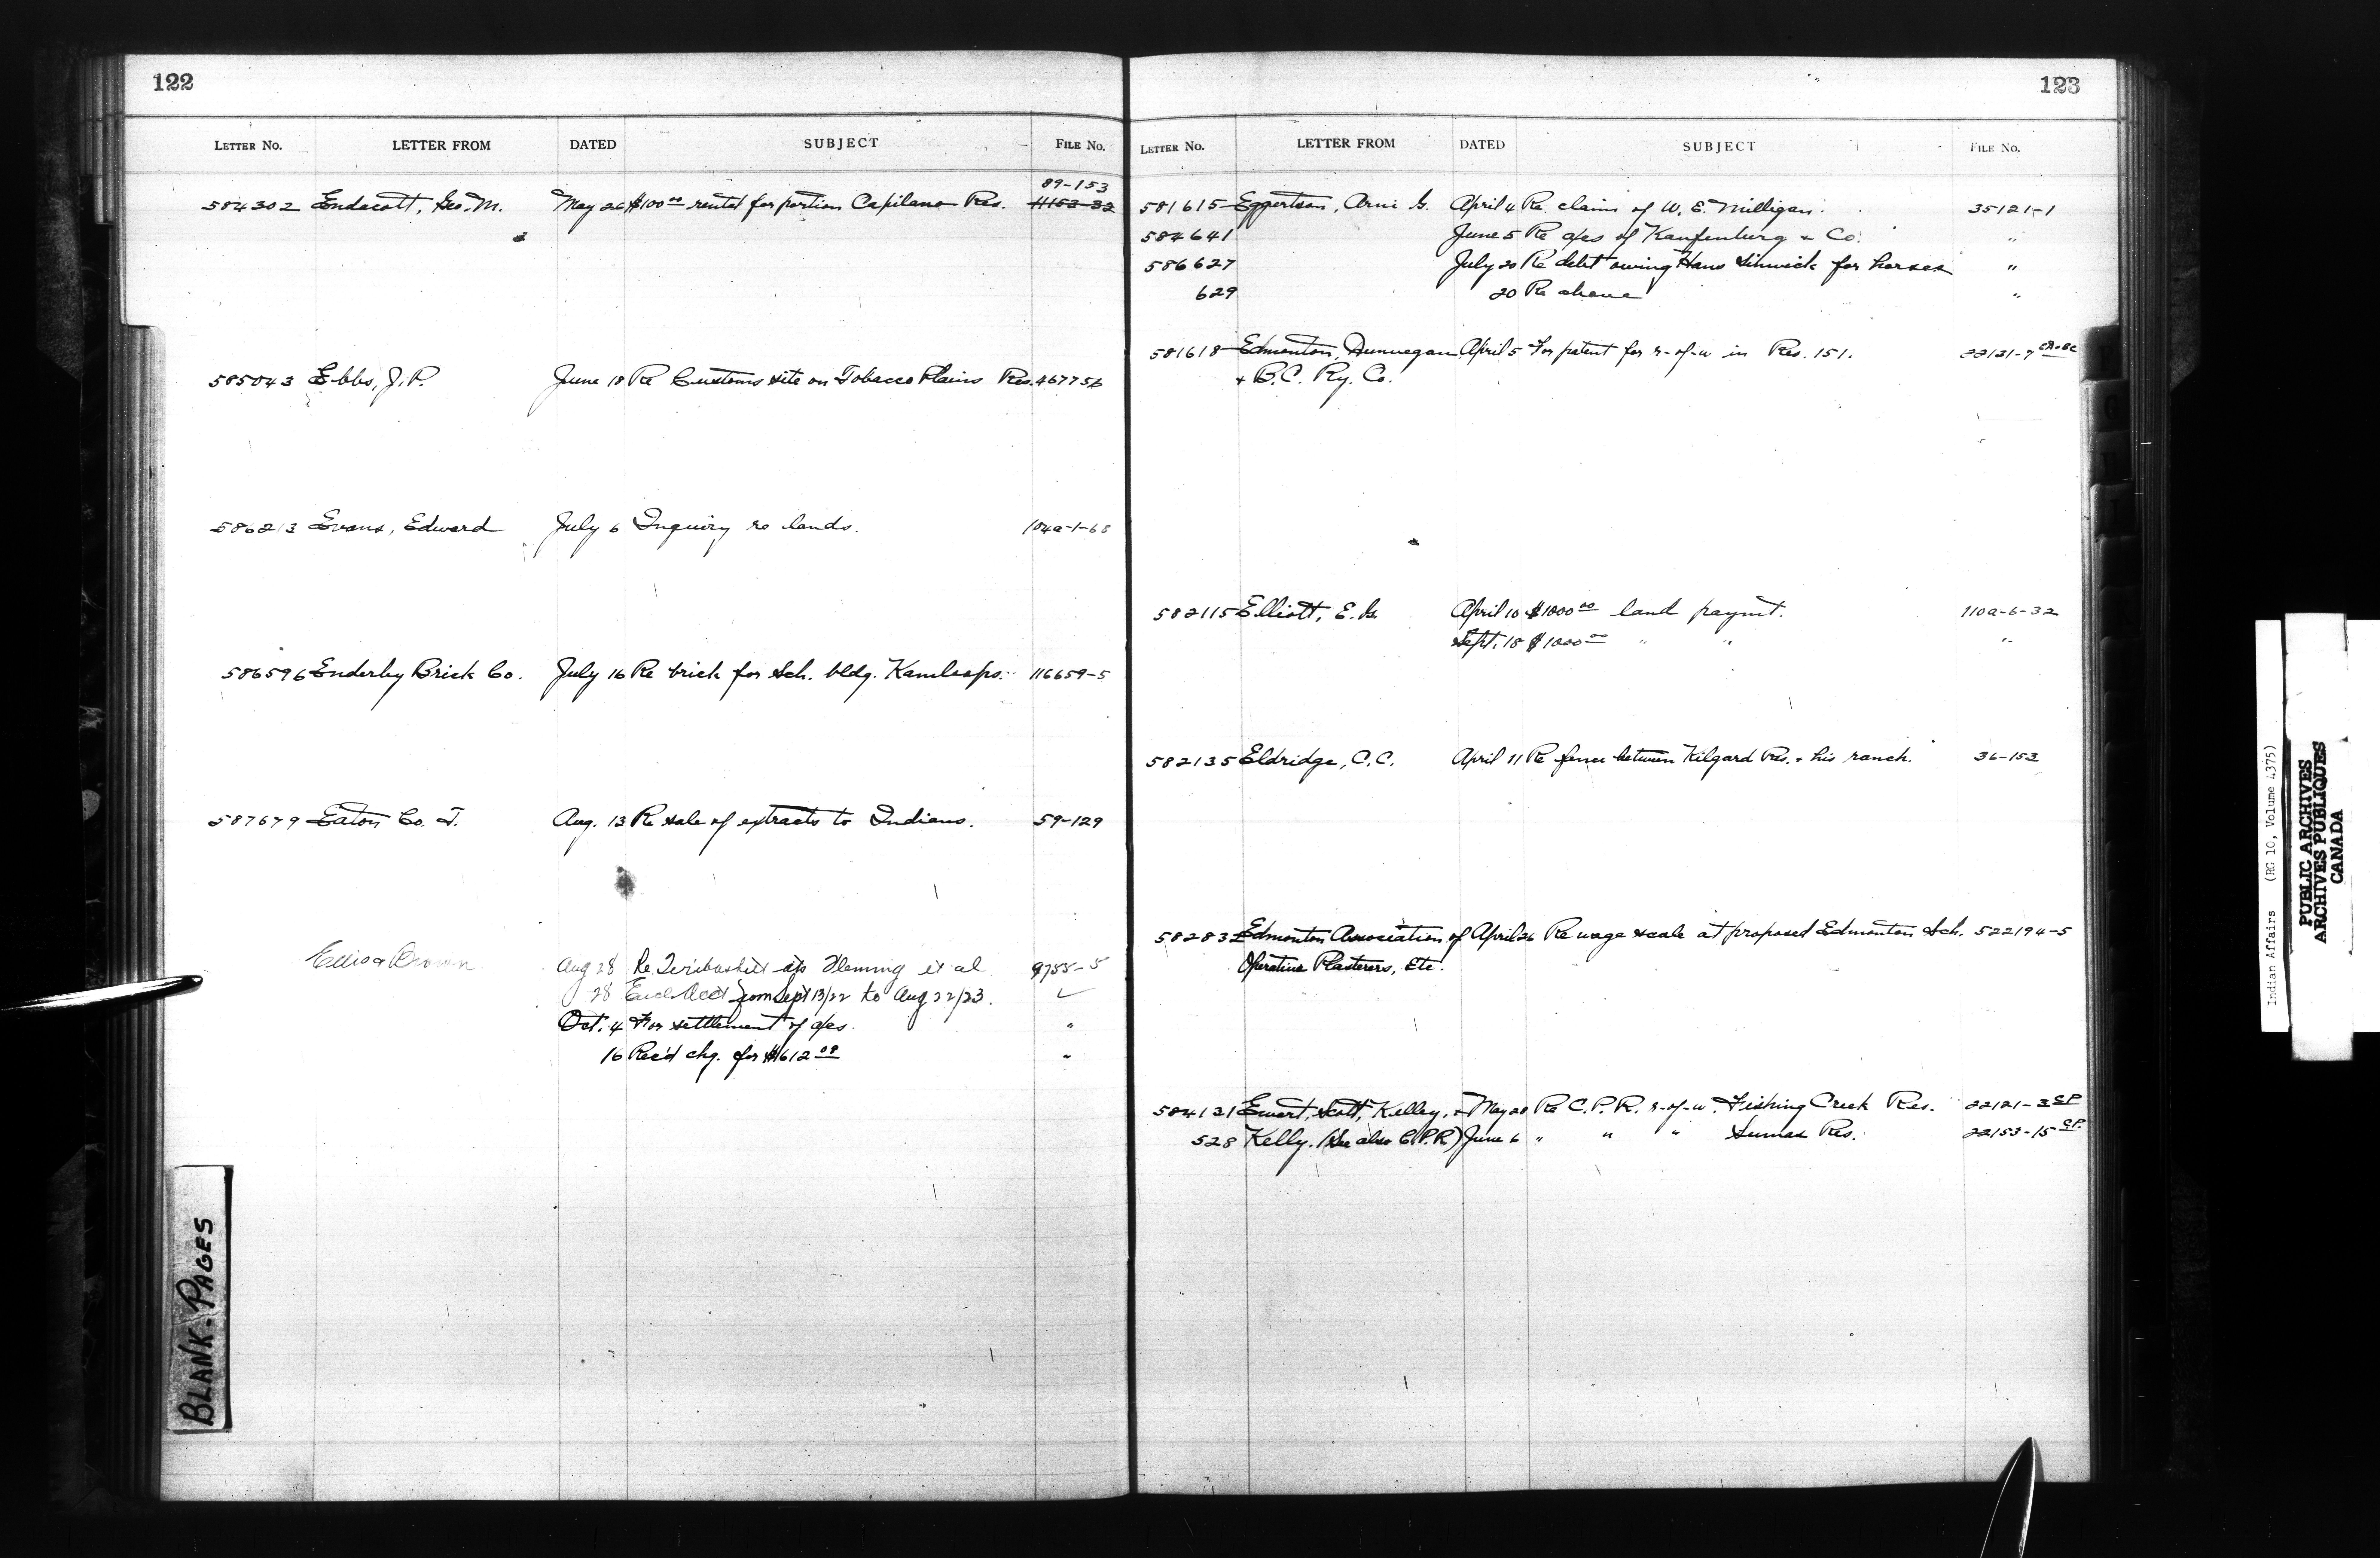 122
LETTER No. LETTER FROM DATED SUBJECT FILE No.
89-153
584302 Endacott, Geo. M. May 26 $100 00 rental for portion Capilano Res. 11153-32
585043 Ebbs, J. P. June 18 Re Customs site on Tobacco Plains Res. 467756
586213 Evans, Edward July 6 Inquiry re lands. 104a-1-68
586596 Enderby Brick Co. July 16 Re brick for Sch. bldg. Kamloops. 116659-5
587679 Eaton Co. T. Aug. 13 Re sale of extracts to Indians. 59-129
Ellis & Brown Aug 28 Re. Teribasket Fleming et al 9755-5
28 Encl. Acct from Sept 13/22 to Aug 22/23.
Oct. 4 For settlement of a/cs. "
16 Rec'd chq. for $1612 09 "
BLANK. PAGES
123
LETTER No. LETTER FROM DATED SUBJECT FILE No.
581615 Eggertson, Arni G. April 4 Re. claim of W. E. Milligan. 35121-1
584641 June 5 Re a/cs of Kaufenburg & Co. "
586627 July 20 Re debt owing Hans for horses "
629 20 Re above "
581618 Edmonton, Dunvegan April 5 For patent for r-of-w in Res. 151. 22131-7
& B.C. Ry. Co.
582115 Elliott, E. G. April 10 $1000 00 land paymt. 110a-6-32
Sept. 18 $1000 00 " " "
582135 Eldridge, C. C. April 11 Re fence between Kilgard Res. & his ranch. 36-153
582832 Edmonton Association of April 26 Re wage scale at proposed Edmonton Sch. 522194-5
Operative Plasterers, Etc.
584121 Ewart, Scott, Kelley, & May 28 Re C.P.R. r-of-w. Fishing Creek Res. 22121-3 CP
528 Kelly. (See also C.P.R.) June 6 " " " Sumas Res. 22153-15 CP
Indian Affairs (RG 10, Volume 4375)
PUBLIC ARCHIVES
ARCHIVES PUBLIQUES
CANADA